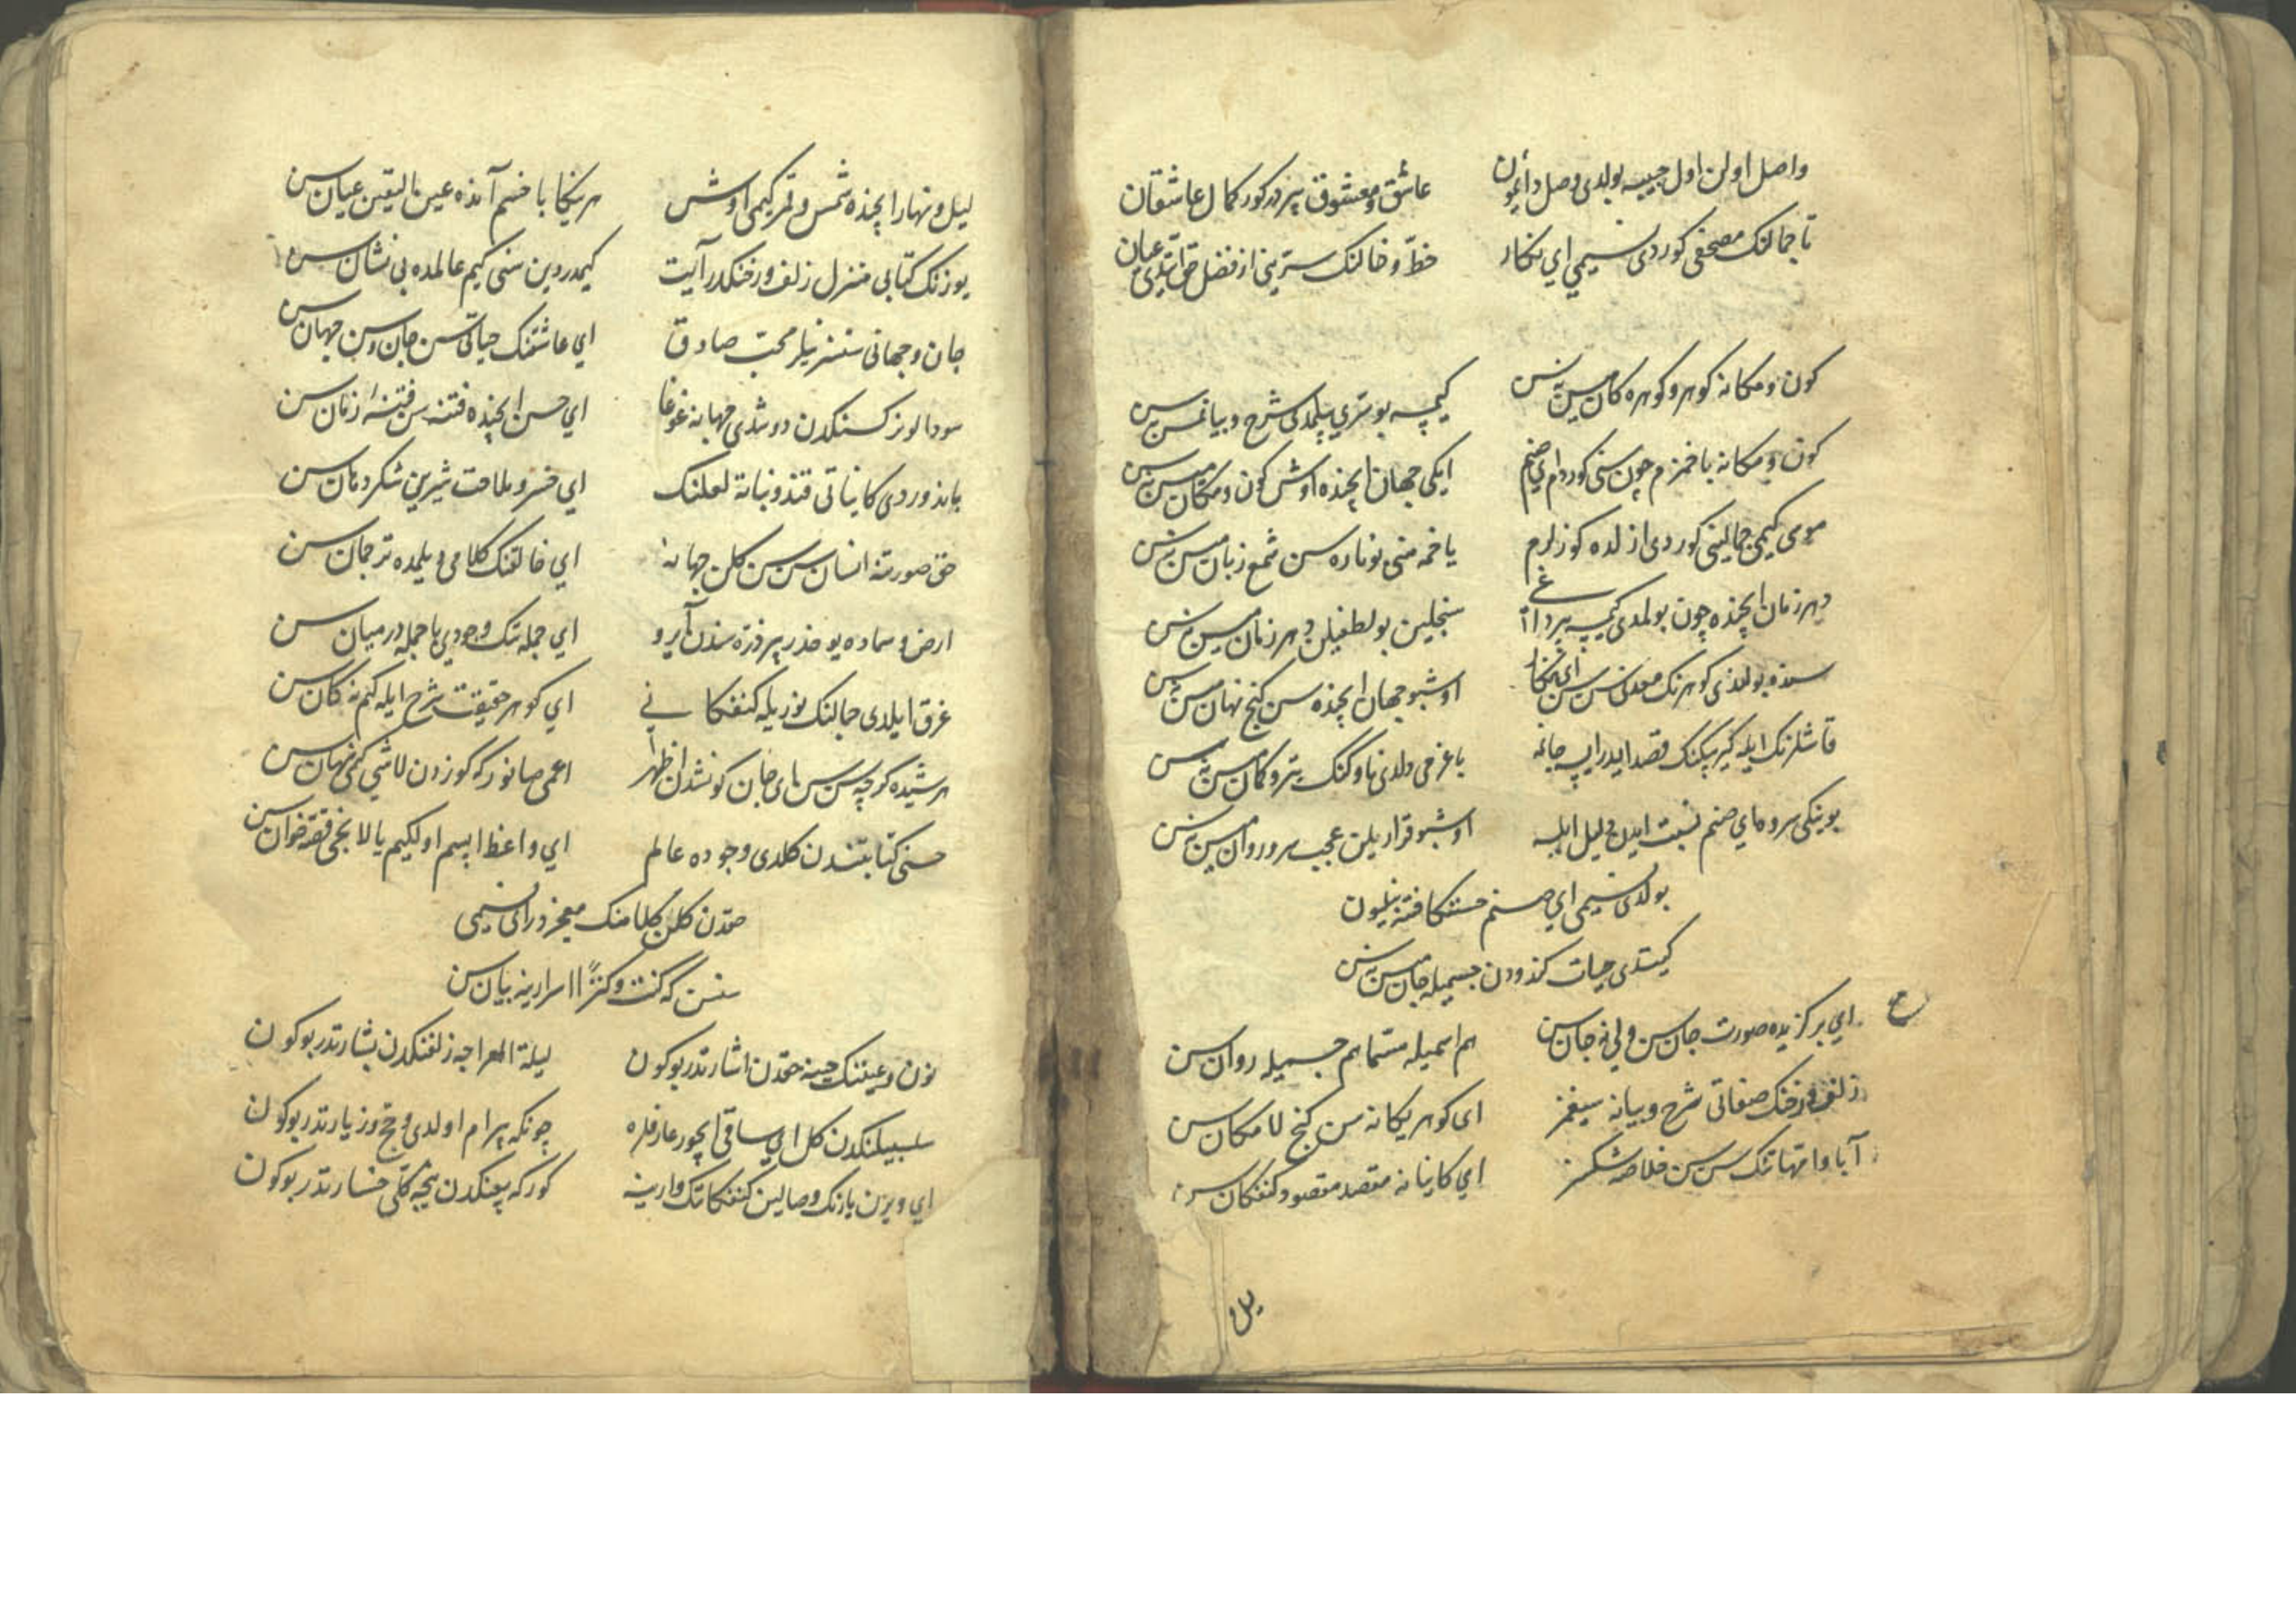 واصل اولن اول حبیبه بولدی وصل دائمون عاشق و معشوق بیردر کور کمال عاشقان
تا جمالنک مصحفی کوردی نسیمی ای نکار خط و خالنک سترینی از فضل حق ایتدی عیان
کون و مکانه کوهر و کوهره کان میسن نه سن کیمسه بو ستری بیلمدی شرح و بیان میسن نه سن
کون و مکانه باخمزم چون سنی کوردم ای صنم ایکی جهان ایچنده اوش کون و مکان میسن نه سن
موسی کیمی جمالینی کوردی ازلده کوزلرم یاخمه منی بو ناره سن شمع زبان میسن نه سن
دهر زمان ایچنده چون بولمدی کیمسه بیر داغی سنجلین بو لطفیلن دهر زمان میسن نه سن
سنده بولندی کوهرنک معدنی سن سن ای نکار اوشبو جهان ایچنده سن کنج نهان میسن نه سن
قاشلرنک ایله کیرپیکنک قصد ایدر ایسه جانه باغرمی دلدی ناوکنک تیر و کمان میسن نه سن
بوینکی سروه ای صنم نسبت ایدن دلیل ایله اوشبو قرار یلن عجب سرو روان میسن نه سن
بولدی نسیمی ای صنم حسنکا فتنه نیلیون
کیتدی حیات کندودن جسمیله جان میسن نه سن
ای برکزیده صورت جان سن ولی نه جان سن هم اسمیله مسما هم جسمیله روان سن
زلف و رخنک صفاتی شرح و بیانه سیغمز ای کوهر یکانه سن کنج لا مکان سن
آبا و امهاتنک سن سن خلاصه شکسز ای کایناته مقصد مقصود کنفکان سن
لیل و نهار ایچنده شمس و قمر کیمی اوش هر ینکا باخسم آنده عین الیقین عیان سن
یوزنک کتابی منزل زلف و رخنکدر آیت کیمدر دین سنی کیم عالمده بی نشان سن
جان و جهانی سنسز نیلر محب صادق ای عاشقنک حیاتی سن جان و سن جهان سن
سودالو نرکسنکدن دوشدی جهانه غوغا ای حسن ایچنده فتنه سن فتنه ٔ زمان سن
باندوردی کایناتی قند و نباته لعلنک ای خسرو ملاحت شیرین شکر دهان سن
حق صورتنه انسان سن سن کلن جهانه ای خالقنک کلامی و یلمده ترجمان سن
ارض و سماده یوخدر بیر ذره سندن آیرو ای جمله تنک وجودی با جمله در میان سن
غرق ایلدی جمالنک نوریله کنفکانی ای کوهر حقیقت شرح ایله کیم نه کان سن
هر شیده کرچه سن سن ای جان کونشدن اظهر اعمی صانور که کوزدن لاشی کیمی نهان سن
حسنی کتابتندن کلدی وجوده عالم ای واعظ ابسم اولکیم یالانجی قصه خوان سن
حقدن کلن کلامنک معجز در ای نسیمی
سنسن که کنت و کنزاً اسرارینه بیان سن
نون و عیننک حسنه حقدن اشارتدر بوکون لیلة المعراجه زلفنکدن بشارتدر بوکون
سلسبیلنکدن کل ای ساقی ایچور عارفلره چونکه بیرام اولدی و حج و زیارتدر بوکون
ای ویرن یارنک وصالین کنفکاتنک وارینه کور که بیعنکدن نیجه کلی خسارتدر بوکون